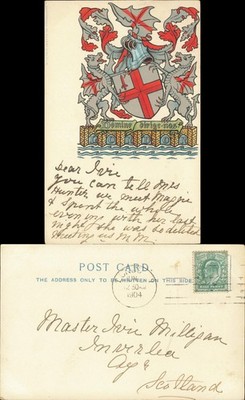 Domine dirige nos
Dear Ivie
you can tell Mrs
Hunter we met Maggie
& spent the whole
evening with her last
night she was so delited
POST CARD.
THE ADDRESS ONLY TO BE WRITTEN ON THIS SIDE.
1904
Master Ivie Milligan
Inverlea
Ayr
Scotland